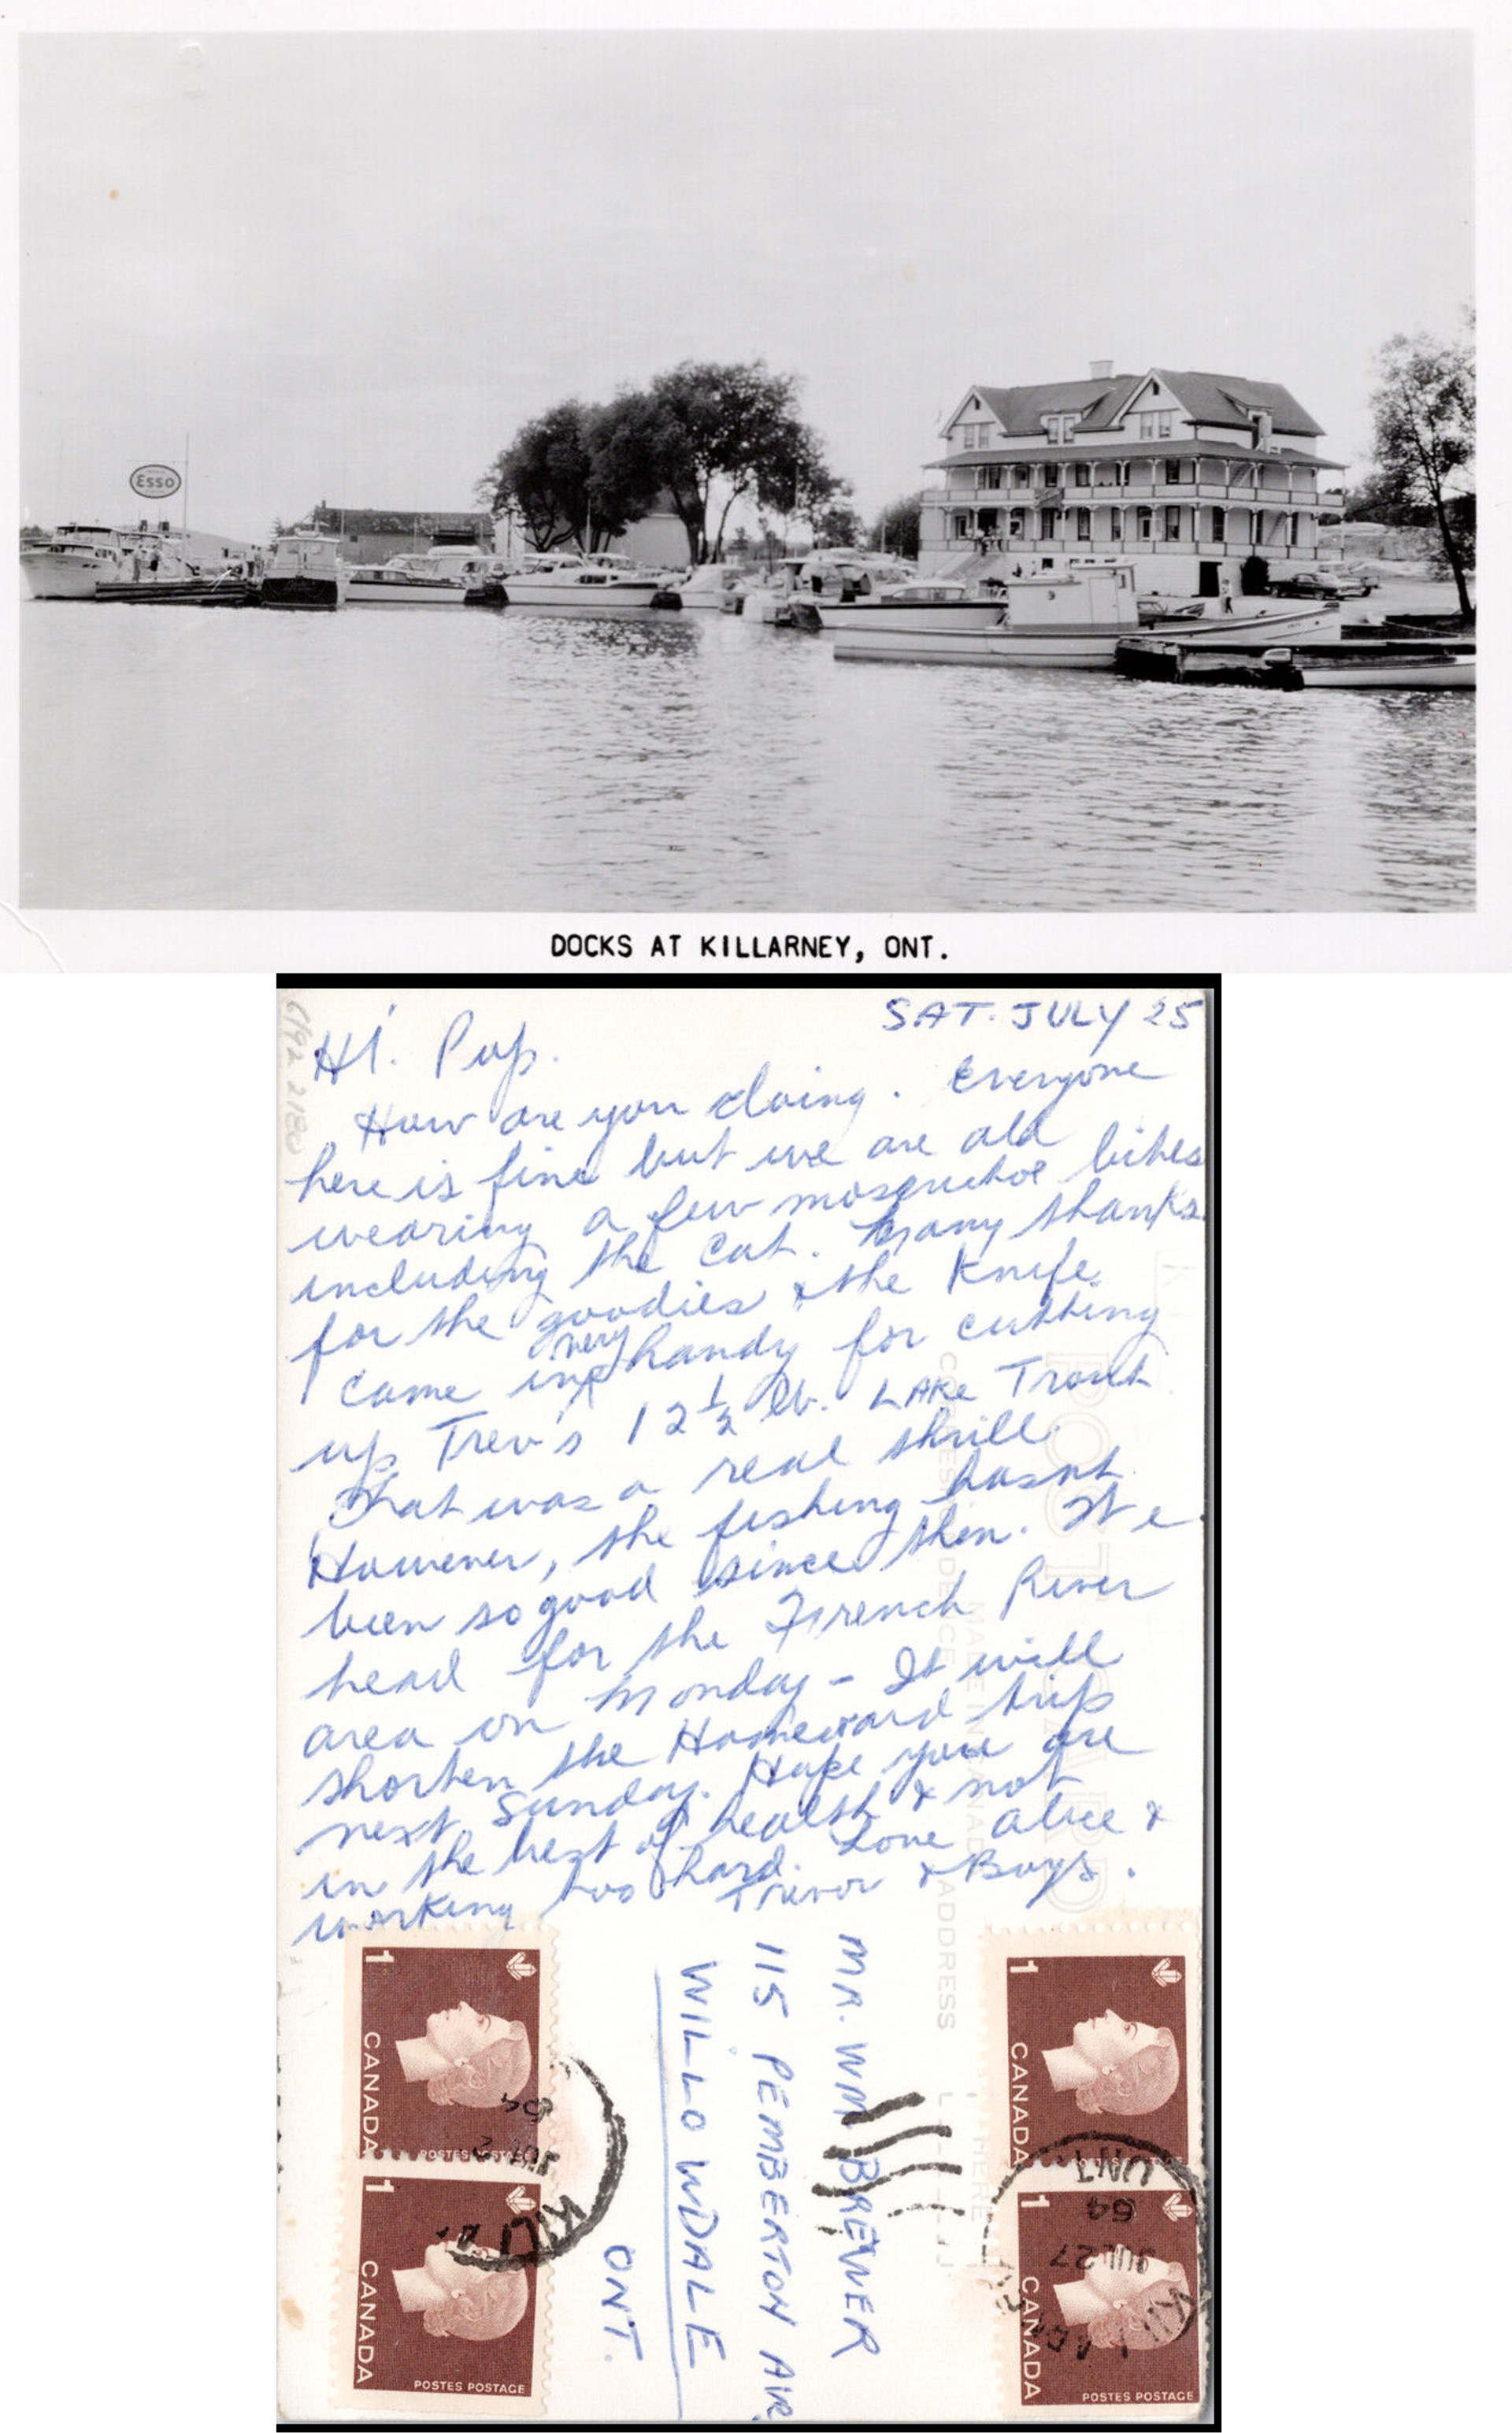 ESSO
DOCKS AT KILLARNEY, ONT.
SAT. JULY 25
Hi. Pop.
How are you doing. Everyone
here is fine but we are all
wearing a few mosquitoe bites
including the cat. Many thanks
for the goodies & the Knife.
came in very handy for cutting
up Trev's 12½ lb. LAKE Trout
That was a real thrill.
However, the fishing hasnt
been so good since then. We
head for the French River
area on Monday - It will
shorten the Homeward trip
next Sunday. Hope you are
in the best of health & not
working too hard. Love Alice &
Trevor & Boys.
POST CARD
MADE IN CANADA
CORRESPONDENCE
ADDRESS
MR. WM BREWER
115 PEMBERTON AV
WILLOWDALE
ONT.
1
CANADA
POSTES POSTAGE
1
CANADA
POSTES POSTAGE
1
CANADA
POSTES POSTAGE
1
CANADA
POSTES POSTAGE
JUL 27
64
ONT